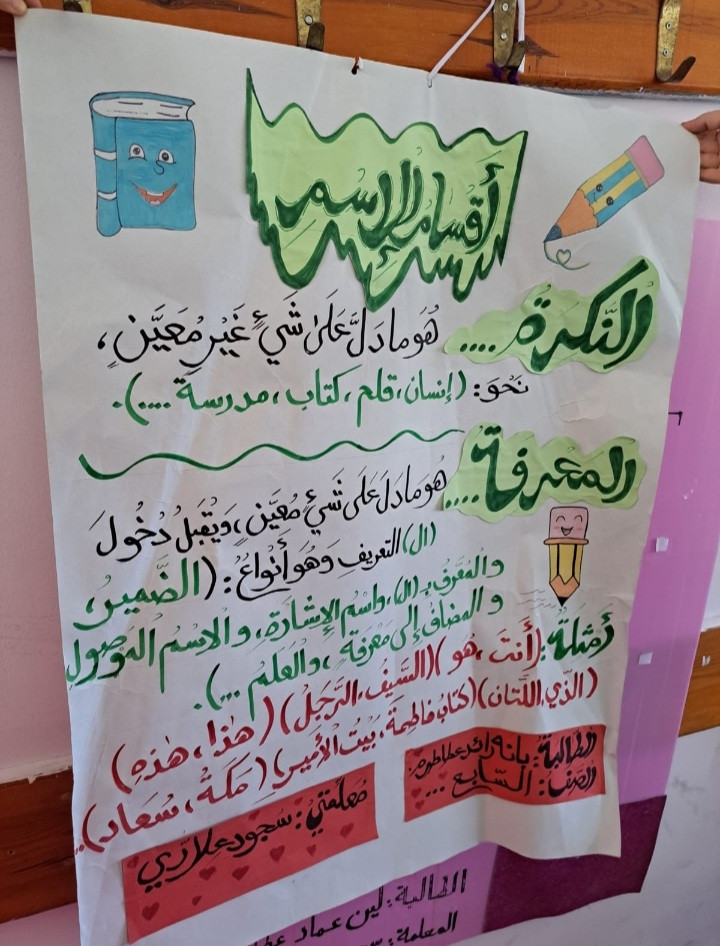 أقسام الإسم
النّكرة .... هُوَ ما دَلَّ عَلَىٰ شَيْءٍ غَيْرِ مُعَيَّنٍ،
نَحْوَ: (إنسان، قلم، كتاب، مدرسة ....).
المعرفة .... هُوَ ما دَلَ عَلَى شَيْءٍ مُعَيَّنٍ، وَيَقْبَلُ دُخُولَ
(ال) التعريف وَهُوَ أَنْوَاعٌ: (الضَّمِيرُ،
والمُعَرَّفُ بـ (ال)، واسم الإشارة، والاسْمُ الموصول
والمضاف إلى مَعْرِفَةٍ، والعَلَمُ ...).
أَمْثِلَةٌ: (أَنْتَ، هُو) (السَّيْفُ، الرَّجُلُ) (هٰذا، هٰذِهِ)
(الَّذِي، اللَّتَان) (كتابُ فاطِمَةَ، بَيْتُ الأمير) (مَكَةُ، سُعَاد)..
الطالبة:
الصّف: السّابع ...
معلّمتي: سجود
الطالبة: لين عماد
المعلمة: